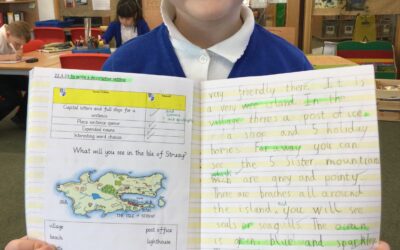 Capital letters and full stops for a sentence
Place sentence opener
Expanded nouns
Interesting word choice
What will you see in the Isle of Struay?
village
beach
post office
lighthouse
very friendly there. It is
a very island. In the
village theres a post ofice
a shop and 5 holiday
homes. you can
see the 5 Sister mountians
wich are grey and pointy.
There are braches all around
the island, you will see
seals or seagulls. The
is blue and